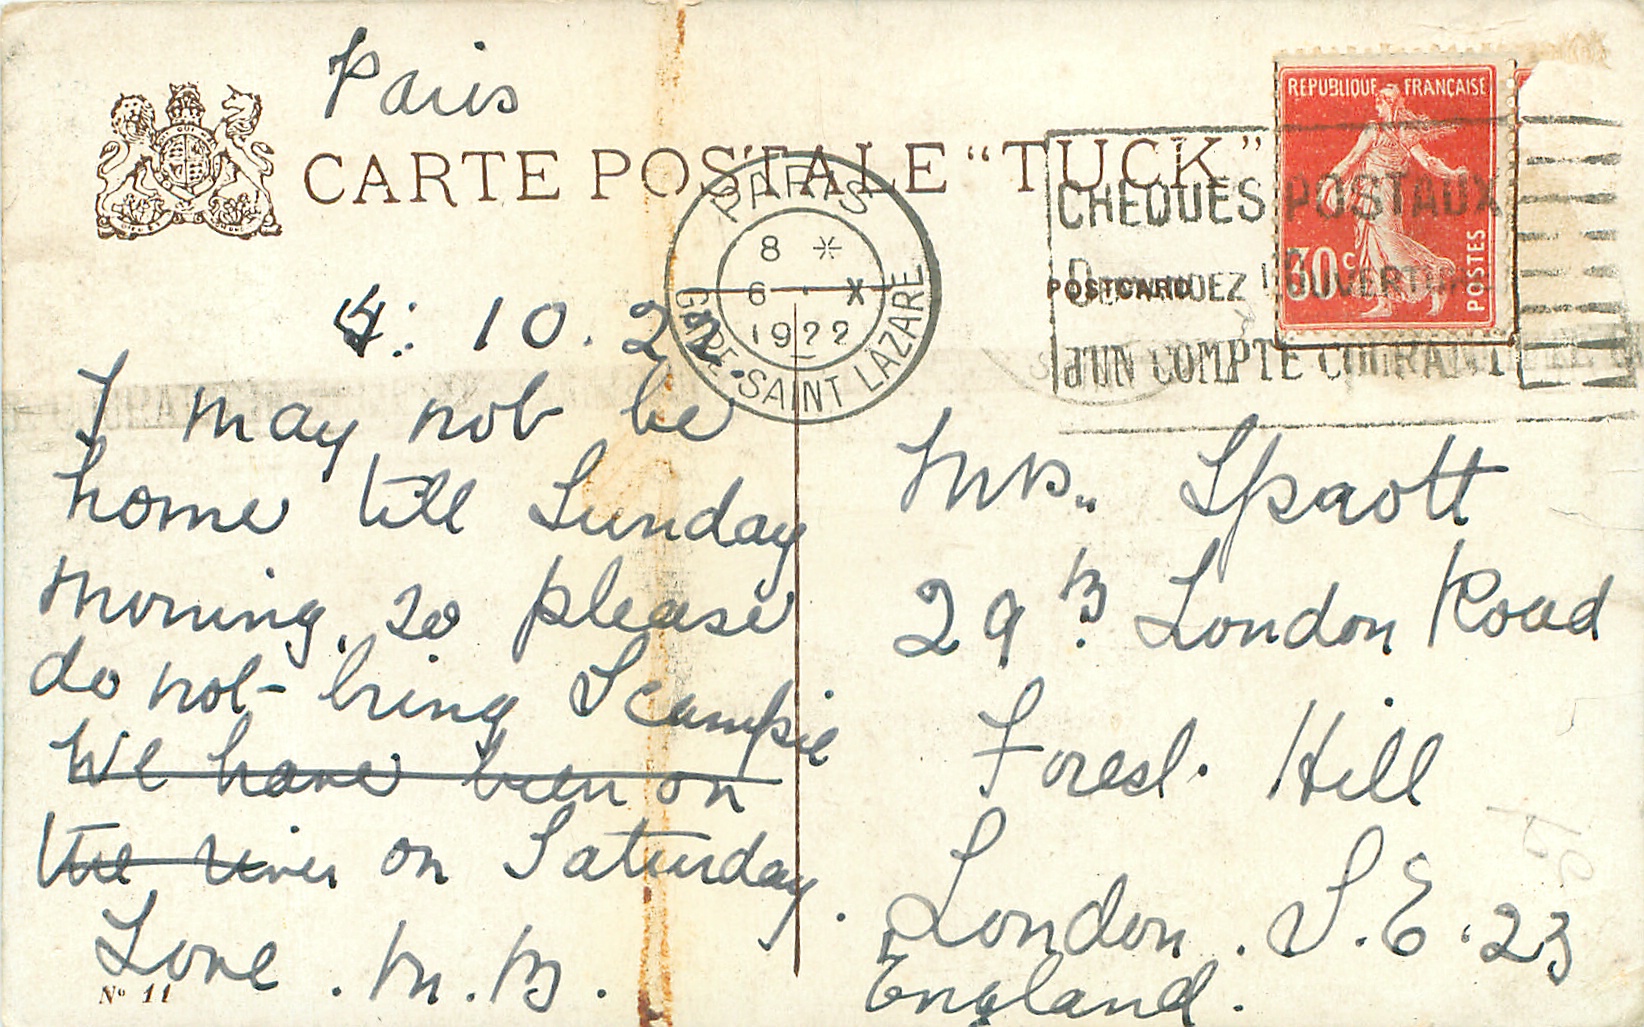 Paris
CARTE POSTALE "TUCK"
REPUBLIQUE FRANÇAISE
30c
POSTES
PARIS
8 *
6 · X
1922
GARE · SAINT LAZARE
CHEQUES POSTAUX
DEMANDEZ L'OUVERTURE
D'UN COMPTE COURANT
POSTCARD
4: 10. 22
I may not be
home till Sunday
morning, so please
do not bring Scampie
We have been on
the river on Saturday.
Love. M. B.
Nº 11
Mrs. Sprott
29B London Road
Forest Hill
London. S.E. 23
England.